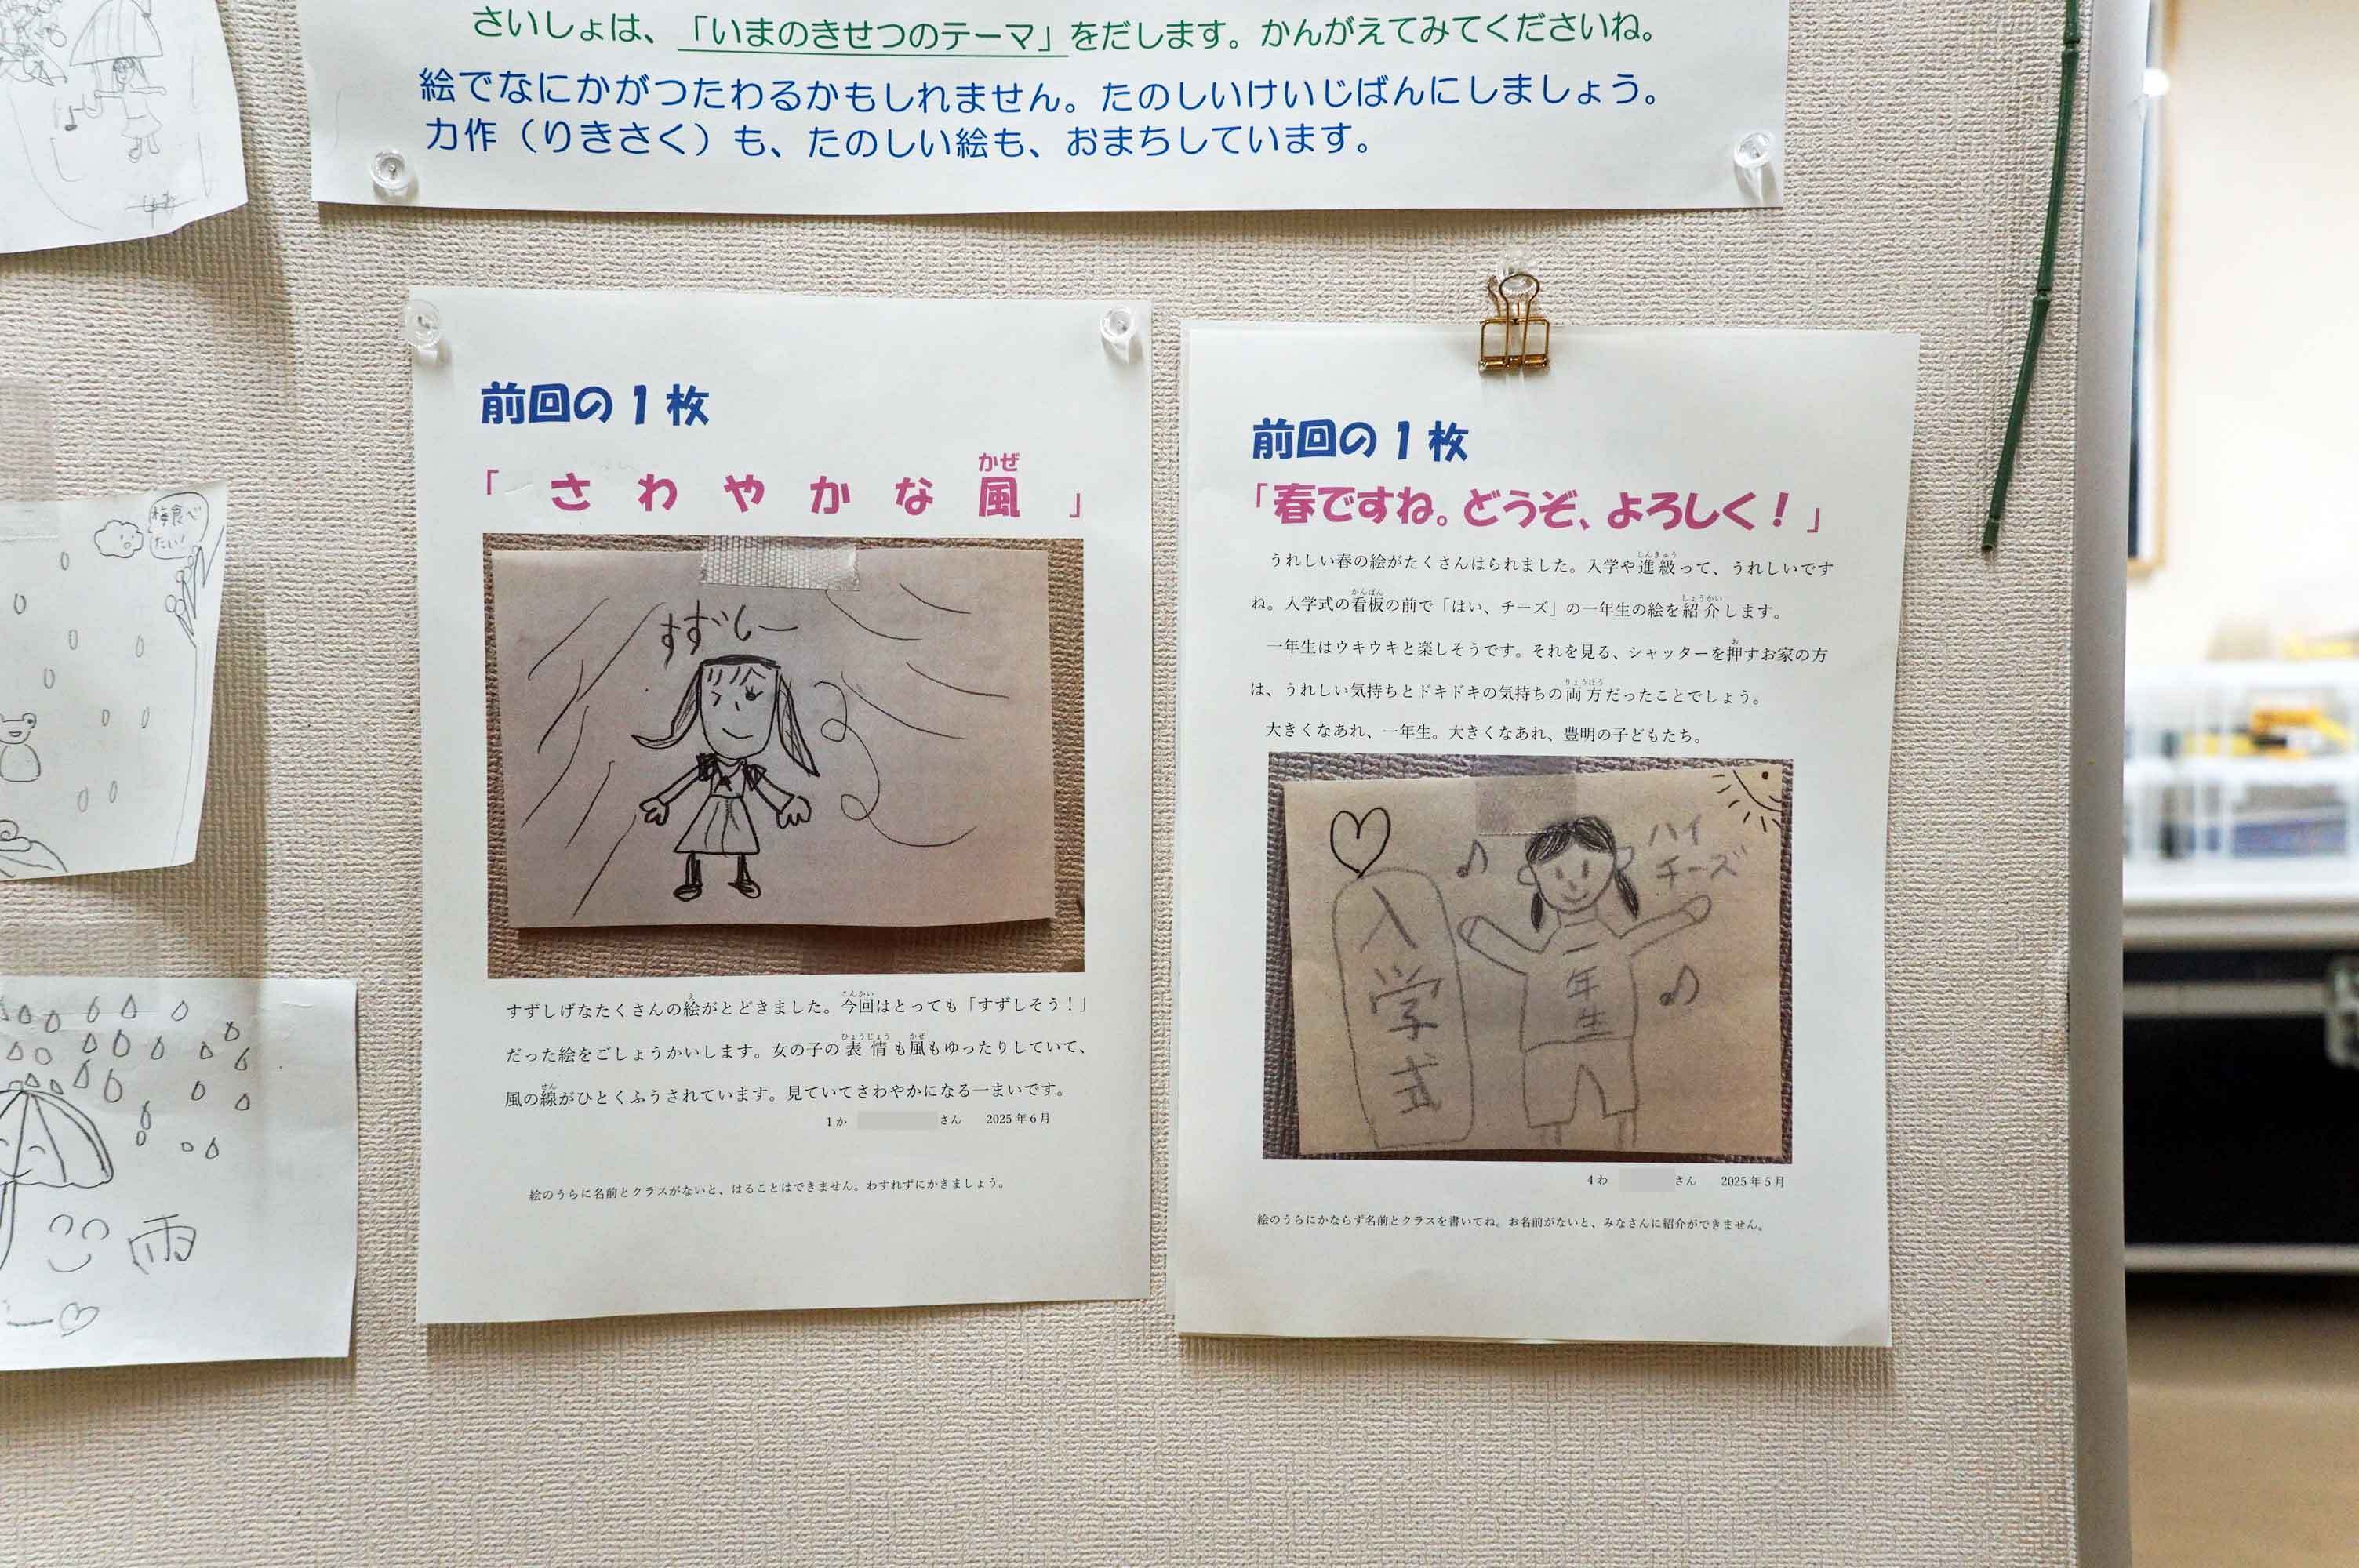 さいしょは、「いまのきせつのテーマ」をだします。かんがえてみてくださいね。
絵でなにかがつたわるかもしれません。たのしいけいじばんにしましょう。
力作（りきさく）も、たのしい絵も、おまちしています。
梅食べ
たい!
雨
前回の1枚
「さわやかな風」
かぜ
すずしー
すずしげなたくさんの絵がとどきました。今回はとっても「すずしそう！」
え
こんかい
だった絵をごしょうかいします。女の子の表情も風もゆったりしていて、
ひょうじょう
かぜ
風の線がひとくふうされています。見ていてさわやかになる一まいです。
せん
1か さん 2025年6月
絵のうらに名前とクラスがないと、はることはできません。わすれずにかきましょう。
前回の1枚
「春ですね。どうぞ、よろしく！」
うれしい春の絵がたくさんはられました。入学や進級って、うれしいです
しんきゅう
ね。入学式の看板の前で「はい、チーズ」の一年生の絵を紹介します。
かんばん
しょうかい
一年生はウキウキと楽しそうです。それを見る、シャッターを押すお家の方
お
は、うれしい気持ちとドキドキの気持ちの両方だったことでしょう。
りょうほう
大きくなあれ、一年生。大きくなあれ、豊明の子どもたち。
ハイ
チーズ
入学式
一年生
4わ さん 2025年5月
絵のうらにかならず名前とクラスを書いてね。お名前がないと、みなさんに紹介ができません。